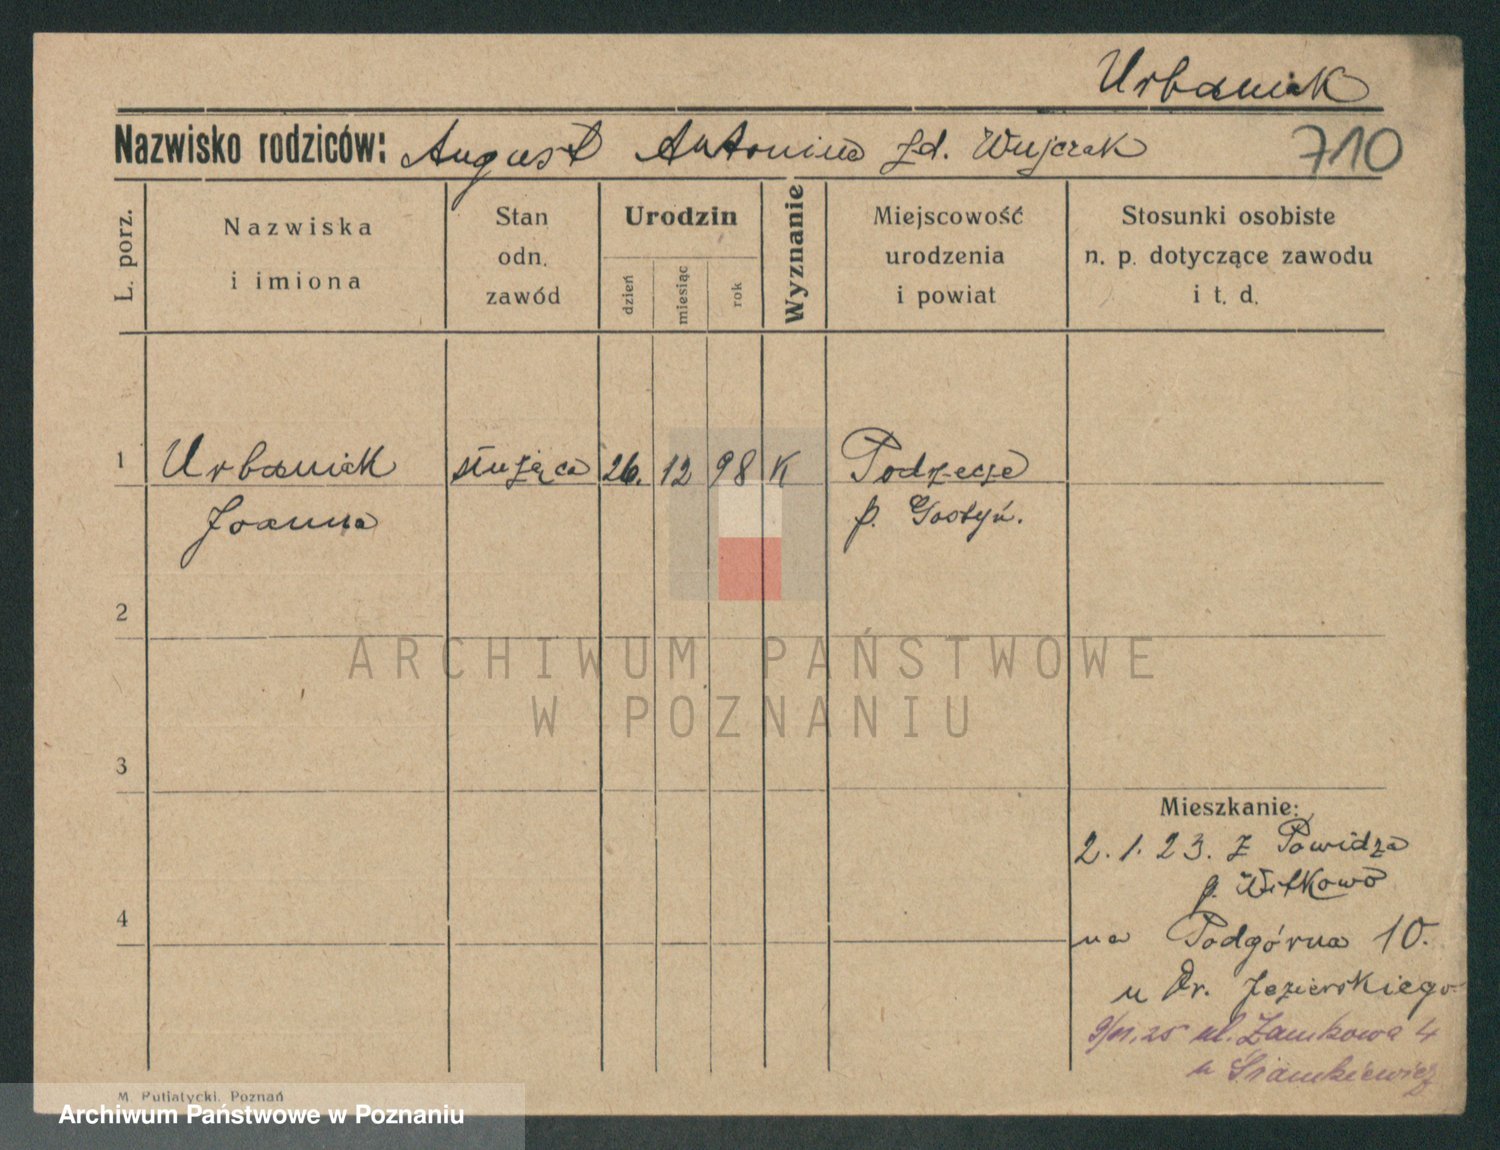 Urbaniak
Nazwisko rodziców: August Antonina zd. Wujczak 710
L. porz.
Nazwiska
i imiona
Stan
odn.
zawód
Urodzin
dzień
miesiąc
rok
Wyznanie
Miejscowość
urodzenia
i powiat
Stosunki osobiste
n. p. dotyczące zawodu
i t. d.
1 Urbaniak służąca 26. 12 98 K Podrzecze
Joanna p. Gostyń.
2
ARCHIWUM PAŃSTWOWE
W POZNANIU
3
Mieszkanie:
2. 1. 23. z Powidza
p. Witkowo
4
na Podgórna 10.
u Dr. Jezierskiego
ul. Zamkowa 4
u
M. Putiatycki, Poznań
Archiwum Państwowe w Poznaniu